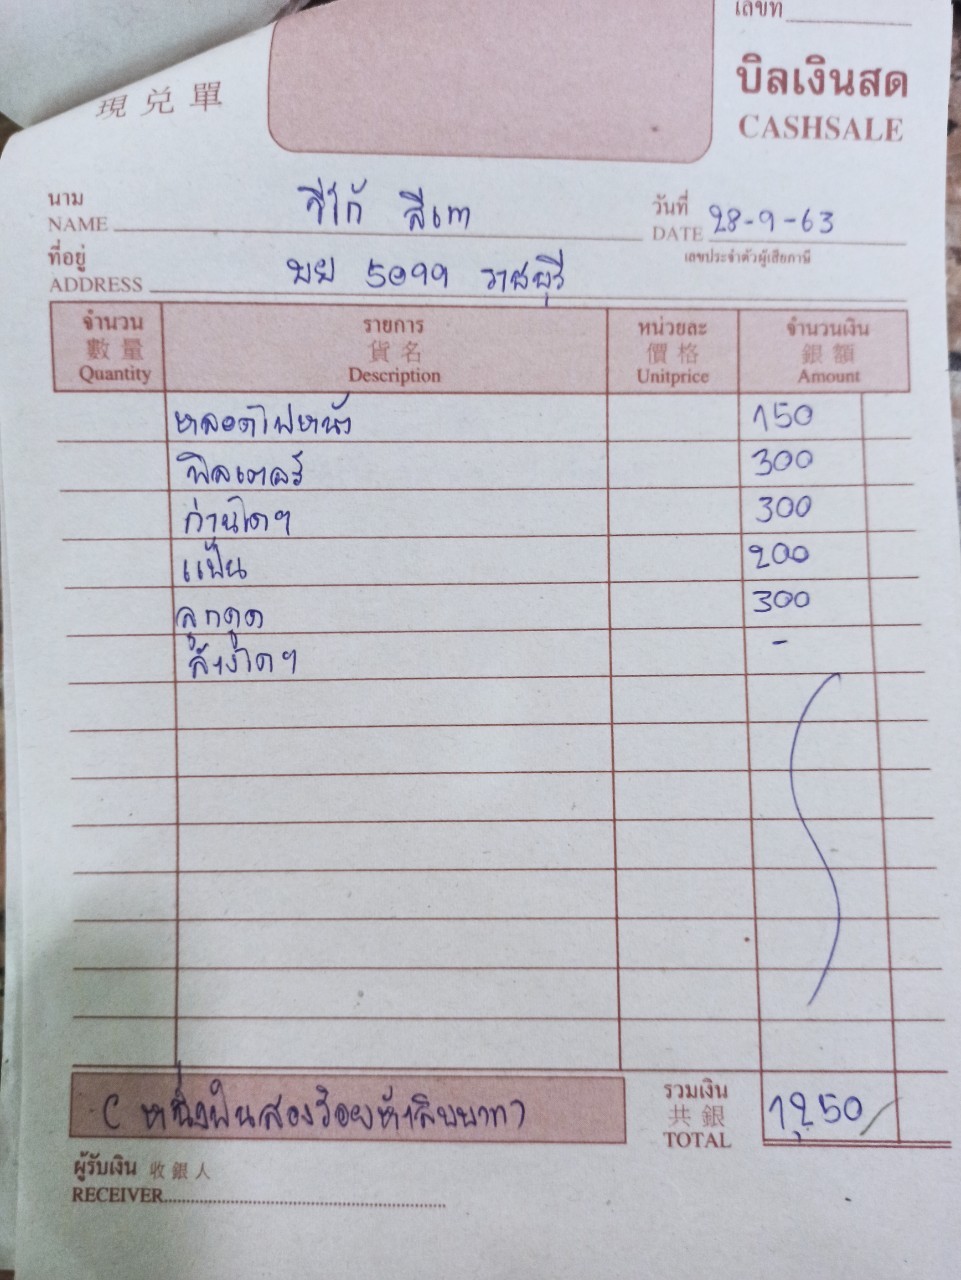 เลขที่
現兌單
บิลเงินสด
CASHSALE
นาม
NAME
วีโก้ สีเทา
วันที่
DATE 28-9-63
ที่อยู่
ADDRESS
5099 ราชบุรี
เลขประจำตัวผู้เสียภาษี
จำนวน รายการ หน่วยละ จำนวนเงิน
數量 貨名 價格 銀額
Quantity Description Unitprice Amount
หลอดไฟหน้า 150
ฟิลเตอร์ 300
300
แป้น 200
ลูกดูด 300
-
( หนึ่งพันสองร้อยห้าสิบบาท )
รวมเงิน
共銀
TOTAL
1250
ผู้รับเงิน 收銀人
RECEIVER